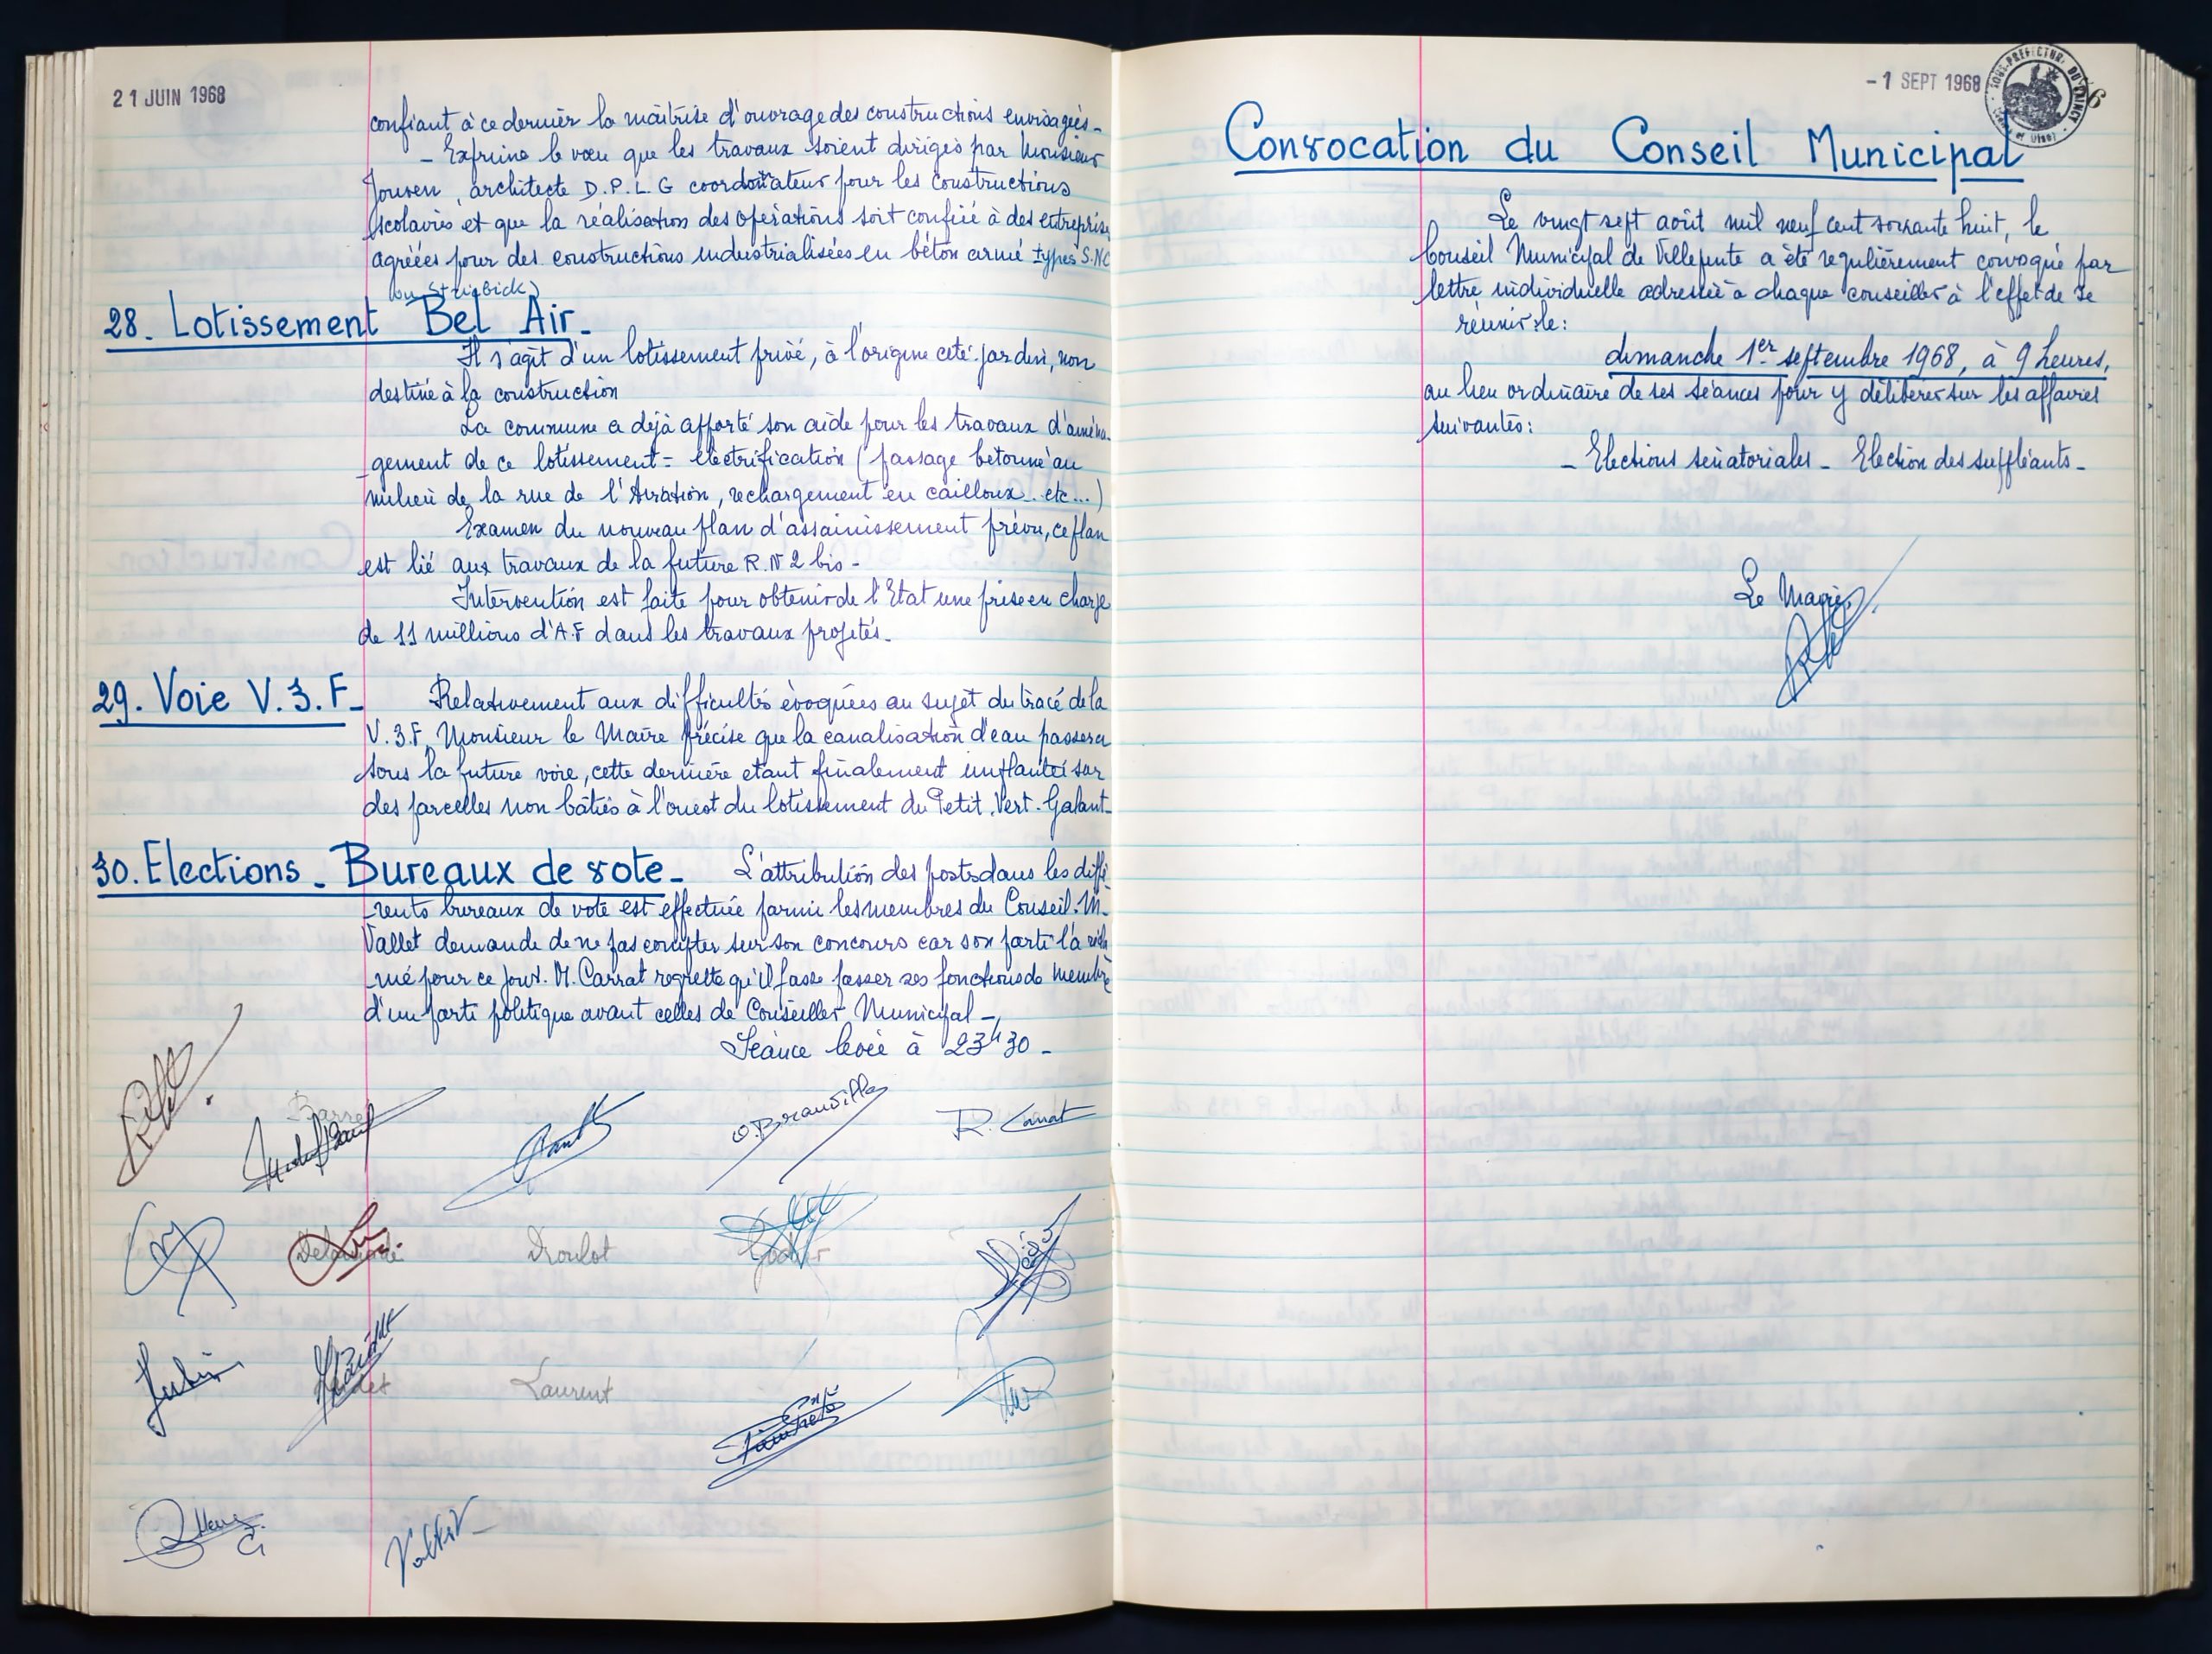 21 JUIN 1968
confiant à ce dernier la maîtrise d'ouvrage des constructions envisagées_
_ Exprime le vœu que les travaux soient dirigés par Monsieur
Jouven, architecte D.P.L.G coordonateur pour les constructions
scolaires et que la réalisation des opérations soit confiée à des entreprises
agréées pour des constructions industrialisées en béton armé types S.NC
28. Lotissement Bel Air_
Il s'agit d'un lotissement privé, à l'origine cité-jardin, non
destiné à la construction
La commune a déjà apporté son aide pour les travaux d'aména-
gement de ce lotissement = électrification (passage betonné au
milieu de la rue de l'Aviation, rechargement en cailloux.. etc...)
Examen du nouveau plan d'assainissement prévu, ce plan
est lié aux travaux de la future R.N 2 bis _
Intervention est faite pour obtenir de l'Etat une prise en charge
de 11 millions d'A.F dans les travaux projetés_
29. Voie V.3.F_
Relativement aux difficultés évoquées au sujet du tracé de la
V.3.F, Monsieur le Maire précise que la canalisation d'eau passera
sous la future voie, cette dernière etant finalement implantée sur
des parcelles non bâties à l'ouest du lotissement du Petit. Vert. Galant_
30. Elections _ Bureaux de vote_ L'attribution des postes dans les diffé
-rents bureaux de vote est effectuée parmi les membres du Conseil. M.
Vallet demande de ne pas compter sur son concours car son parti l'a
pour ce jour. M. Carrat regrette qu'il fasse passer ses fonctions de membre
d'un parti politique avant celles de Conseiller Municipal _
Séance levée à 23h30 _
Barre
O. Branville
R. Carrat
Delalande
Droulot
Godier
Laurent
-1 SEPT 1968
SOUS-PREFECTURE DU RAINCY
6
Convocation du Conseil Municipal
Le vingt sept août mil neuf cent soixante huit, le
Conseil Municipal de Villepinte a été regulièrement convoqué par
lettre individuelle adressée à chaque conseiller à l'effet de se
réunir le:
dimanche 1er septembre 1968, à 9 heures,
au lieu ordinaire de ses séances pour y délibérer sur les affaires
suivantes:
_ Elections sénatoriales _ Election des suppléants_
Le Maire,